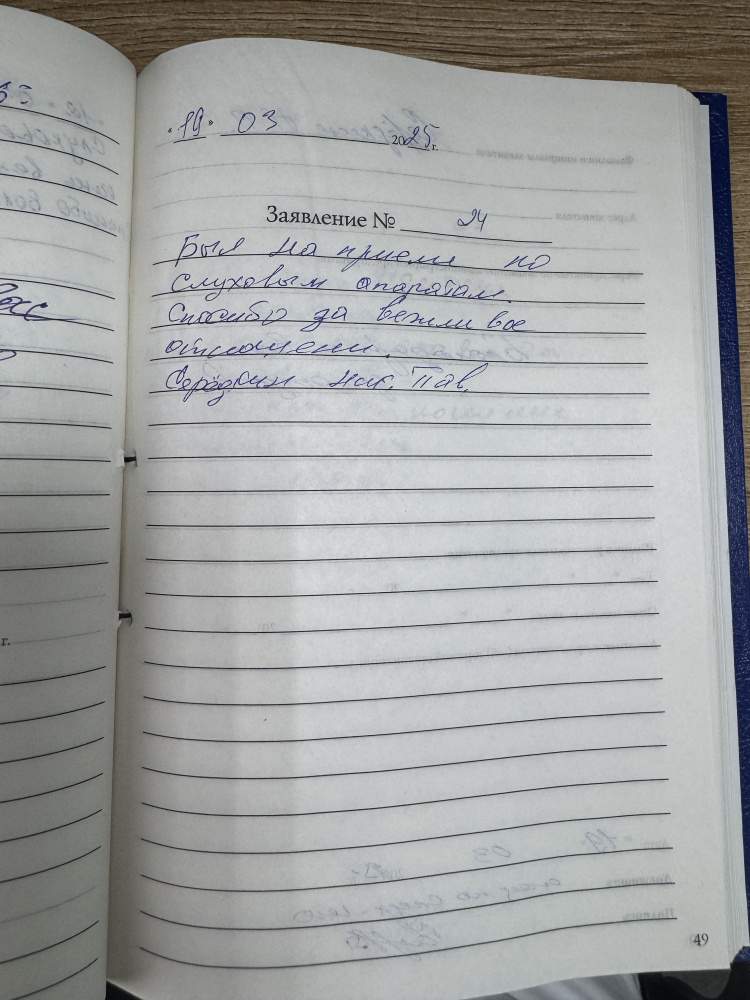 «19» 03 2025 г.
Заявление № 24
Был на приеме по
слуховым апаратам.
Спосибо за вежли вое
отношени.
Ник. Пав.
г.
49